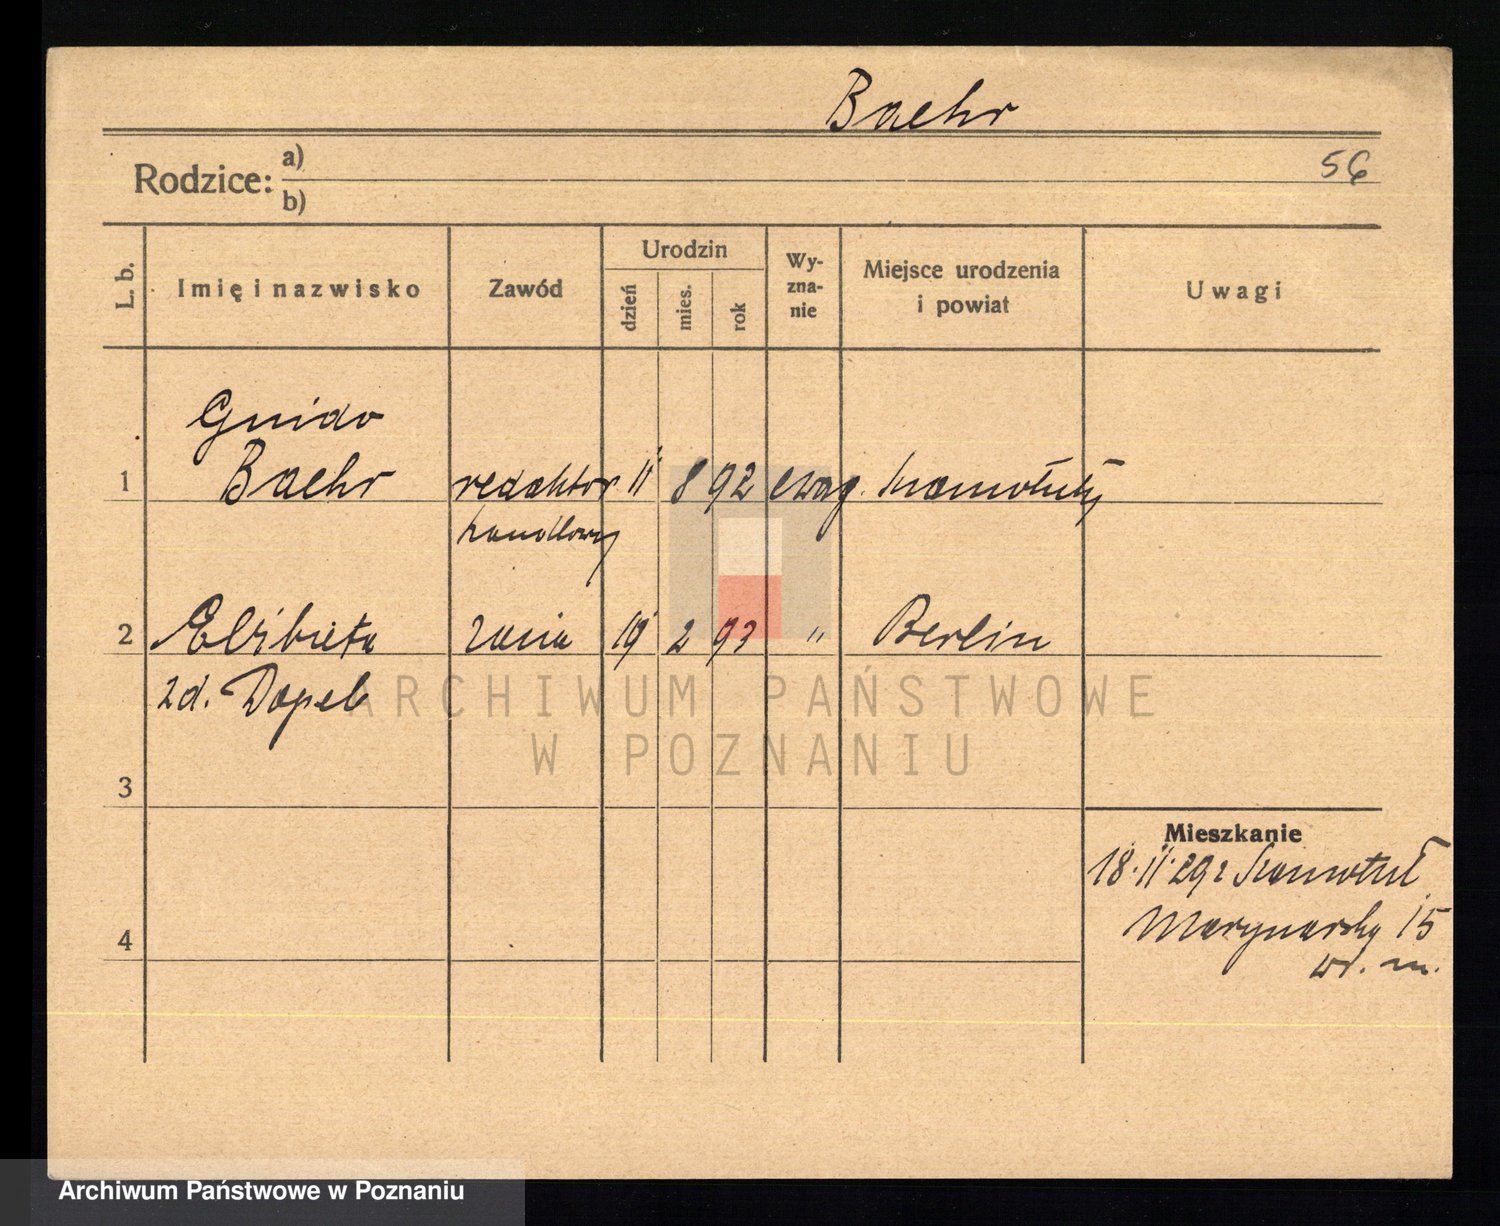 Baehr
56
Rodzice: a)
b)
L. b.
Imię i nazwisko
Zawód
Urodzin
dzień
mies.
rok
Wy-
zna-
nie
Miejsce urodzenia
i powiat
Uwagi
Guido
1 Baehr redaktor 11 8 92 ewag. Szamotuły
handlowy
2 Elżbieta żona 19 2 93 " Berlin
zd. Dopel
ARCHIWUM PAŃSTWOWE
W POZNANIU
3
Mieszkanie
18.11.29r Szamotuł
4
Marynarska 15
w. m.
Archiwum Państwowe w Poznaniu